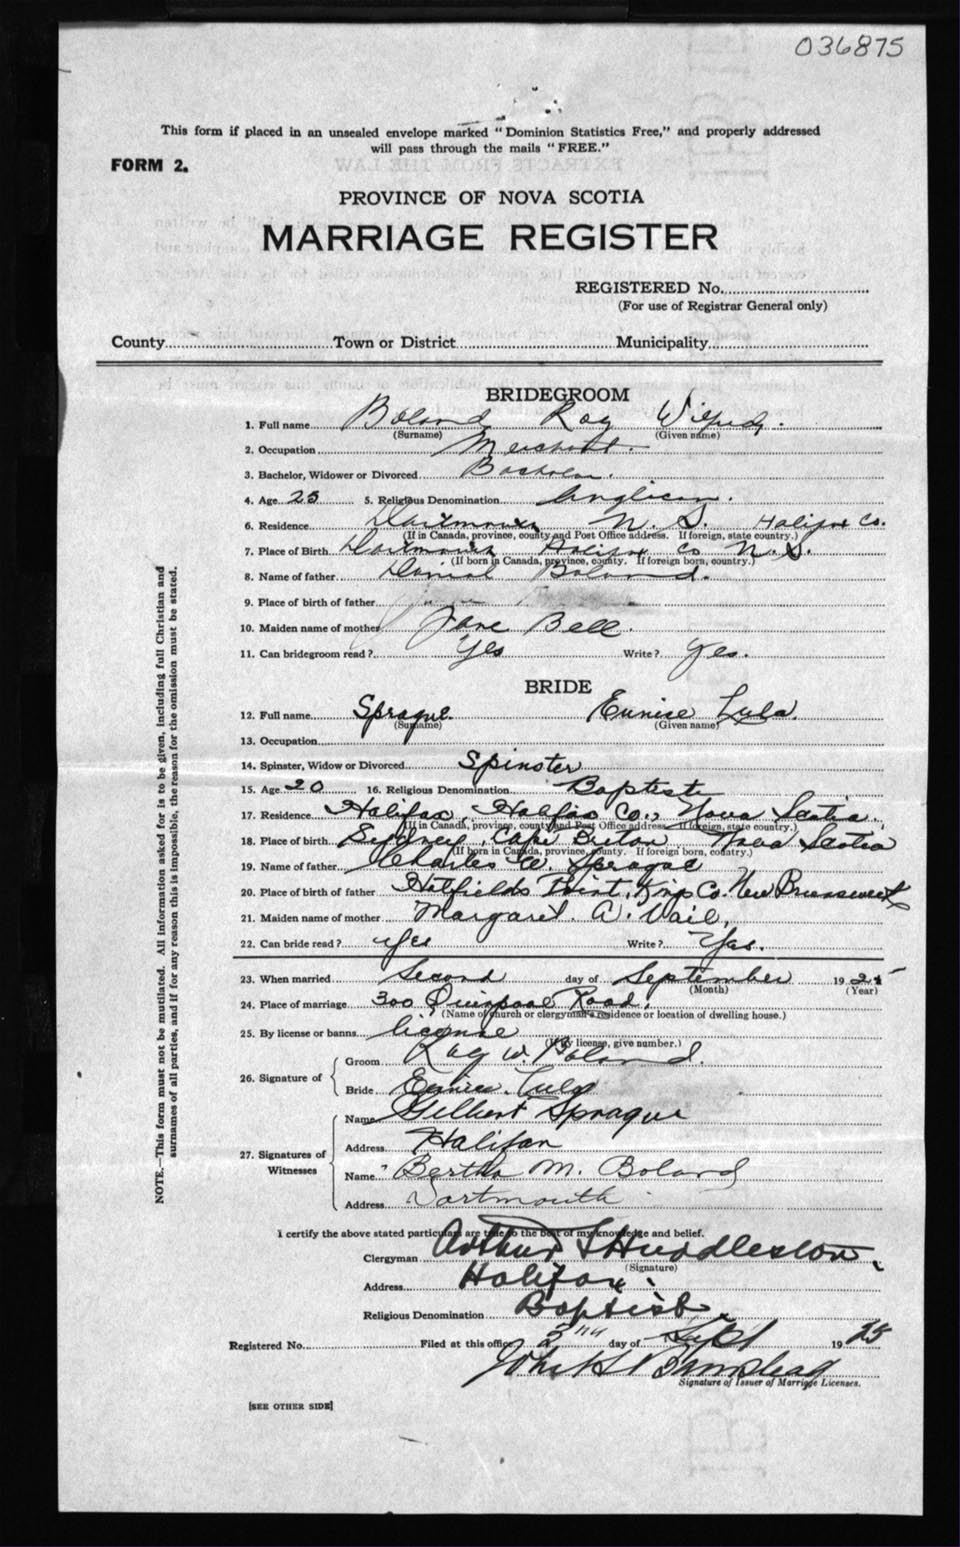 036875
This form if placed in an unsealed envelope marked "Dominion Statistics Free," and properly addressed
will pass through the mails "FREE."
FORM 2.
PROVINCE OF NOVA SCOTIA
MARRIAGE REGISTER
REGISTERED No.
(For use of Registrar General only)
County Town or District Municipality
BRIDEGROOM
1. Full name Boland Ray Wilfred.
(Surname) (Given name)
2. Occupation Merchant.
3. Bachelor, Widower or Divorced Bachelor.
4. Age 25 5. Religious Denomination Anglican.
6. Residence Dartmouth N. S. Halifax Co.
(If in Canada, province, county and Post Office address. If foreign, state country.)
7. Place of Birth Dartmouth Halifax Co N. S.
(If born in Canada, province, county. If foreign born, country.)
8. Name of father Daniel Boland.
9. Place of birth of father
10. Maiden name of mother Jane Bell.
11. Can bridegroom read? Yes Write? Yes.
BRIDE
12. Full name Sprague. Eunice Lula.
(Surname) (Given name)
13. Occupation
14. Spinster, Widow or Divorced Spinster
15. Age 20 16. Religious Denomination Baptist
17. Residence Halifax, Halifax Co., Nova Scotia.
(If in Canada, province, county and Post Office address. If foreign, state country.)
18. Place of birth Sydney, Cape Breton Nova Scotia
(If born in Canada, province, county. If foreign born, country.)
19. Name of father Charles W. Sprague
20. Place of birth of father Hatfields Point, Kings Co. New Brunswick
21. Maiden name of mother Margaret. A. Vail,
22. Can bride read? Yes Write? Yes.
23. When married Second day of September 1925
(Month) (Year)
24. Place of marriage 300 Quinpool Road.
(Name of church or clergyman's residence or location of dwelling house.)
25. By license or banns license
(If by license, give number.)
26. Signature of Groom Ray W. Boland.
Bride Eunice Lula
27. Signatures of Witnesses Name Gilbert Sprague
Address Halifax
Name Bertha M. Boland
Address Dartmouth
I certify the above stated particulars are true to the best of my knowledge and belief.
Clergyman Arthur S Huddleston.
(Signature)
Address Halifax.
Religious Denomination Baptist.
Registered No. Filed at this office 2nd day of Sept 1925
John H
Signature of Issuer of Marriage Licenses.
[SEE OTHER SIDE]
NOTE.—This form must not be mutilated. All information asked for is to be given, including full Christian and
surnames of all parties, and if for any reason this is impossible, the reason for the omission must be stated.